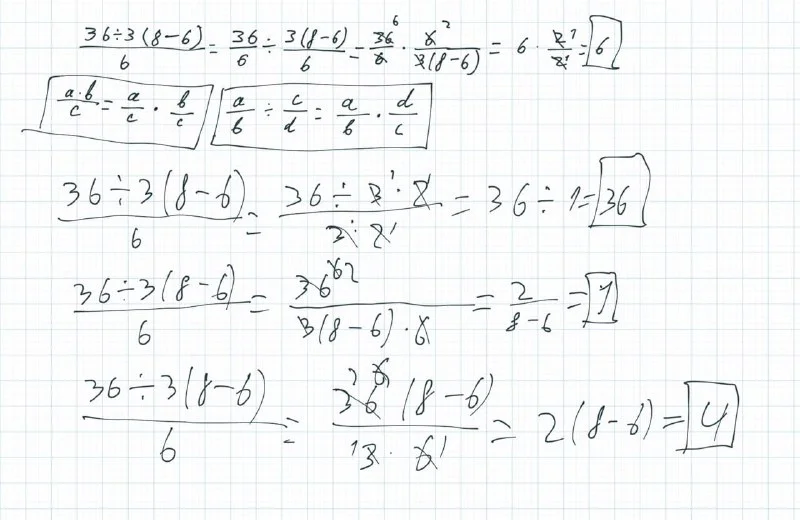 (36÷3(8−6))/6 = 36/6 ÷ 3(8−6)/6 = 36⁶/6 · 6²/3(8−6) = 6 · 2¹/2¹ = 6
a·b/c = a/c · b/c   a/b ÷ c/d = a/b · d/c
(36÷3(8−6))/6 = (36÷3¹·2)/(3·2¹) = 36÷1 = 36
(36÷3(8−6))/6 = 36⁶²/(3(8−6)·6) = 2/(8−6) = 1
(36÷3(8−6))/6 = 36(8−6)/(3·6) = 2(8−6) = 4